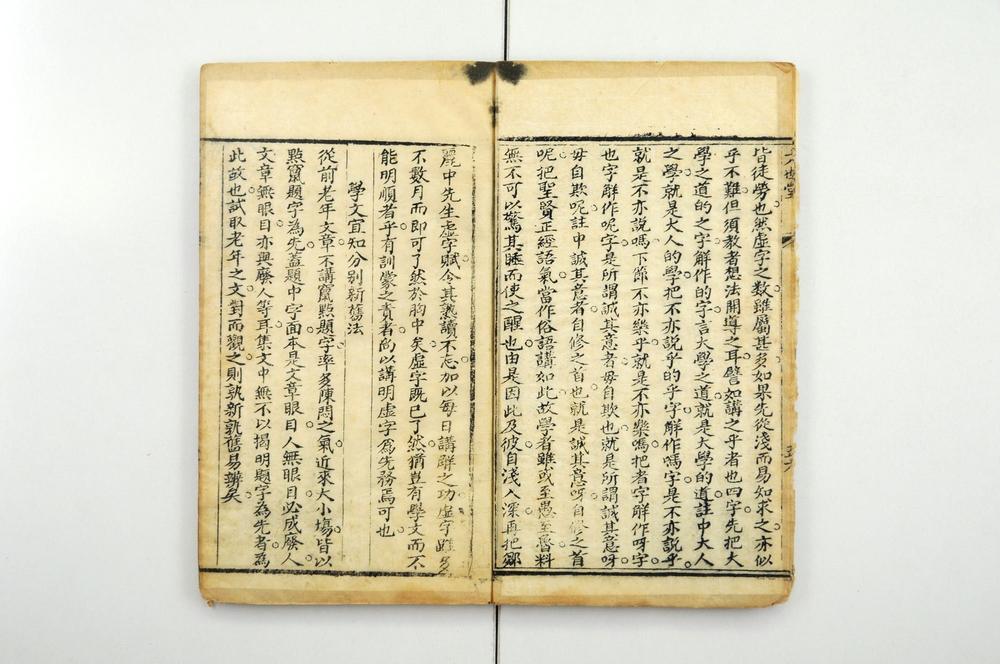 皆徒勞也然虛字之數雖屬甚多如果先從淺而易如求之亦似
乎不難但須教者想法開導之耳譬如講之乎者也四字先把大
學之道的之字解作的字言大學之道就是大學的道註中大人
之學就是大人的學把不亦説乎的乎字解作嗎字是不亦説乎
就是不亦說嗎下節不亦樂乎就是不亦樂嗎把者字解作呀字
也字解作呢字是所謂誠其意者毋自欺也就是所謂誠其意呀
毋自欺呢註中誠其意者自修之首也就是誠其意呀自修之首
呢把聖賢正經語氣當作俗語講如此故學者雖或至愚至魯料
無不可以驚其睡而使之醒也由是因此及彼自淺入深再把鄒
麗中先生虛字賦令其熟讀不忘加以每日講解之功虛字雖多
不數月而即可了然於胸中矣虛字既已了然猶豈有學文而不
能明順者乎有訓蒙之責者的以講明虛字為先務焉可也
學文宜知分別新舊法
從前老年文章不講竄點題字率多陳悶之氣近來大小塲皆以
點竄題字為先蓋題中字面本是文章眼目人無眼目必成廢人
文章無眼目亦與廢人等耳集文中無不以揭明題字為先者為
此故也試取老年之文對而觀之則孰新孰舊易辨矣